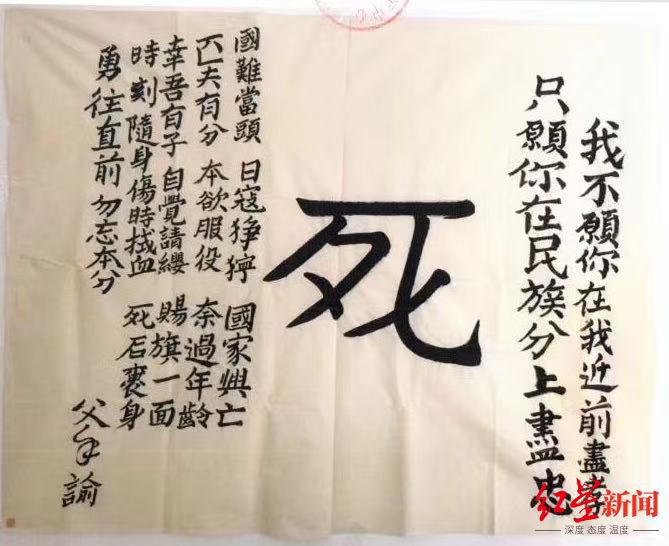 我不願你在我近前盡孝
只願你在民族分上盡忠
死
國難當頭 日寇猙獰 國家興亡
匹夫有分 本欲服役 奈過年齡
幸吾有子 自覺請纓 賜旗一面
時刻隨身 傷時拭血 死后裹身
勇往直前 勿忘本分
父手諭
红星新闻
深度 态度 温度